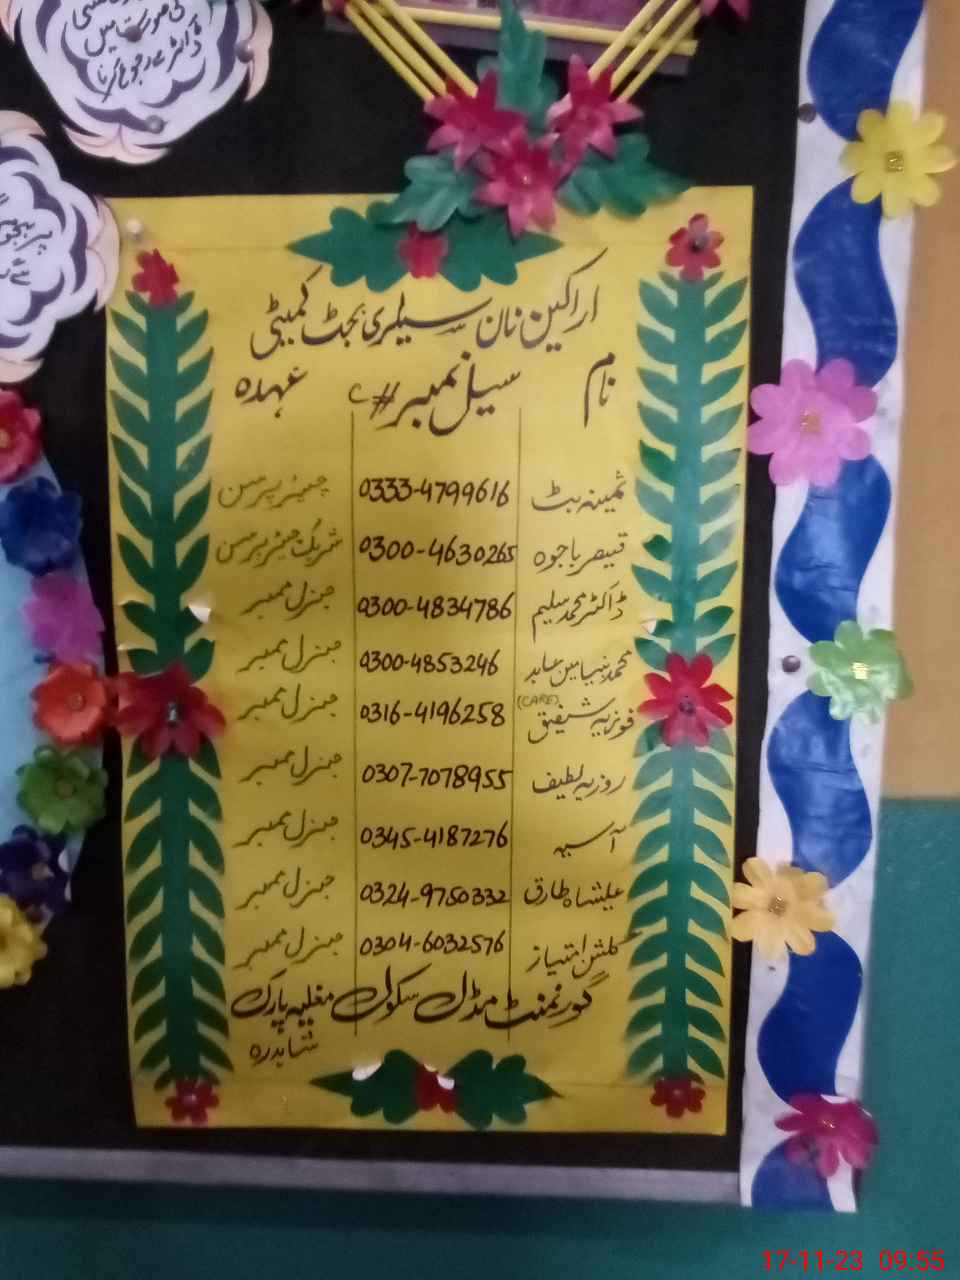 کی صورت میں
ڈاکٹر سے رجوع کرنا
اراکین نان سیلری بجٹ کمیٹی
نام سیل نمبر# عہدہ
ثمینہ بٹ 0333-4799616 چیئر پرسن
قیصر باجوہ 0300-4630265 شریک چیئر پرسن
ڈاکٹر محمد سلیم 0300-4834786 جنرل ممبر
محمد بنیامین عابد 0300-4853246 جنرل ممبر
(CARE)
فوزیہ شفیق 0316-4196258 جنرل ممبر
روزیہ لطیف 0307-7078955 جنرل ممبر
آسیہ 0345-4187276 جنرل ممبر
علیشاہ طارق 0324-9750332 جنرل ممبر
گلشن امتیاز 0304-6032576 جنرل ممبر
گورنمنٹ مڈل سکول مغلیہ پارک
شاہدرہ
17-11-23 09:55